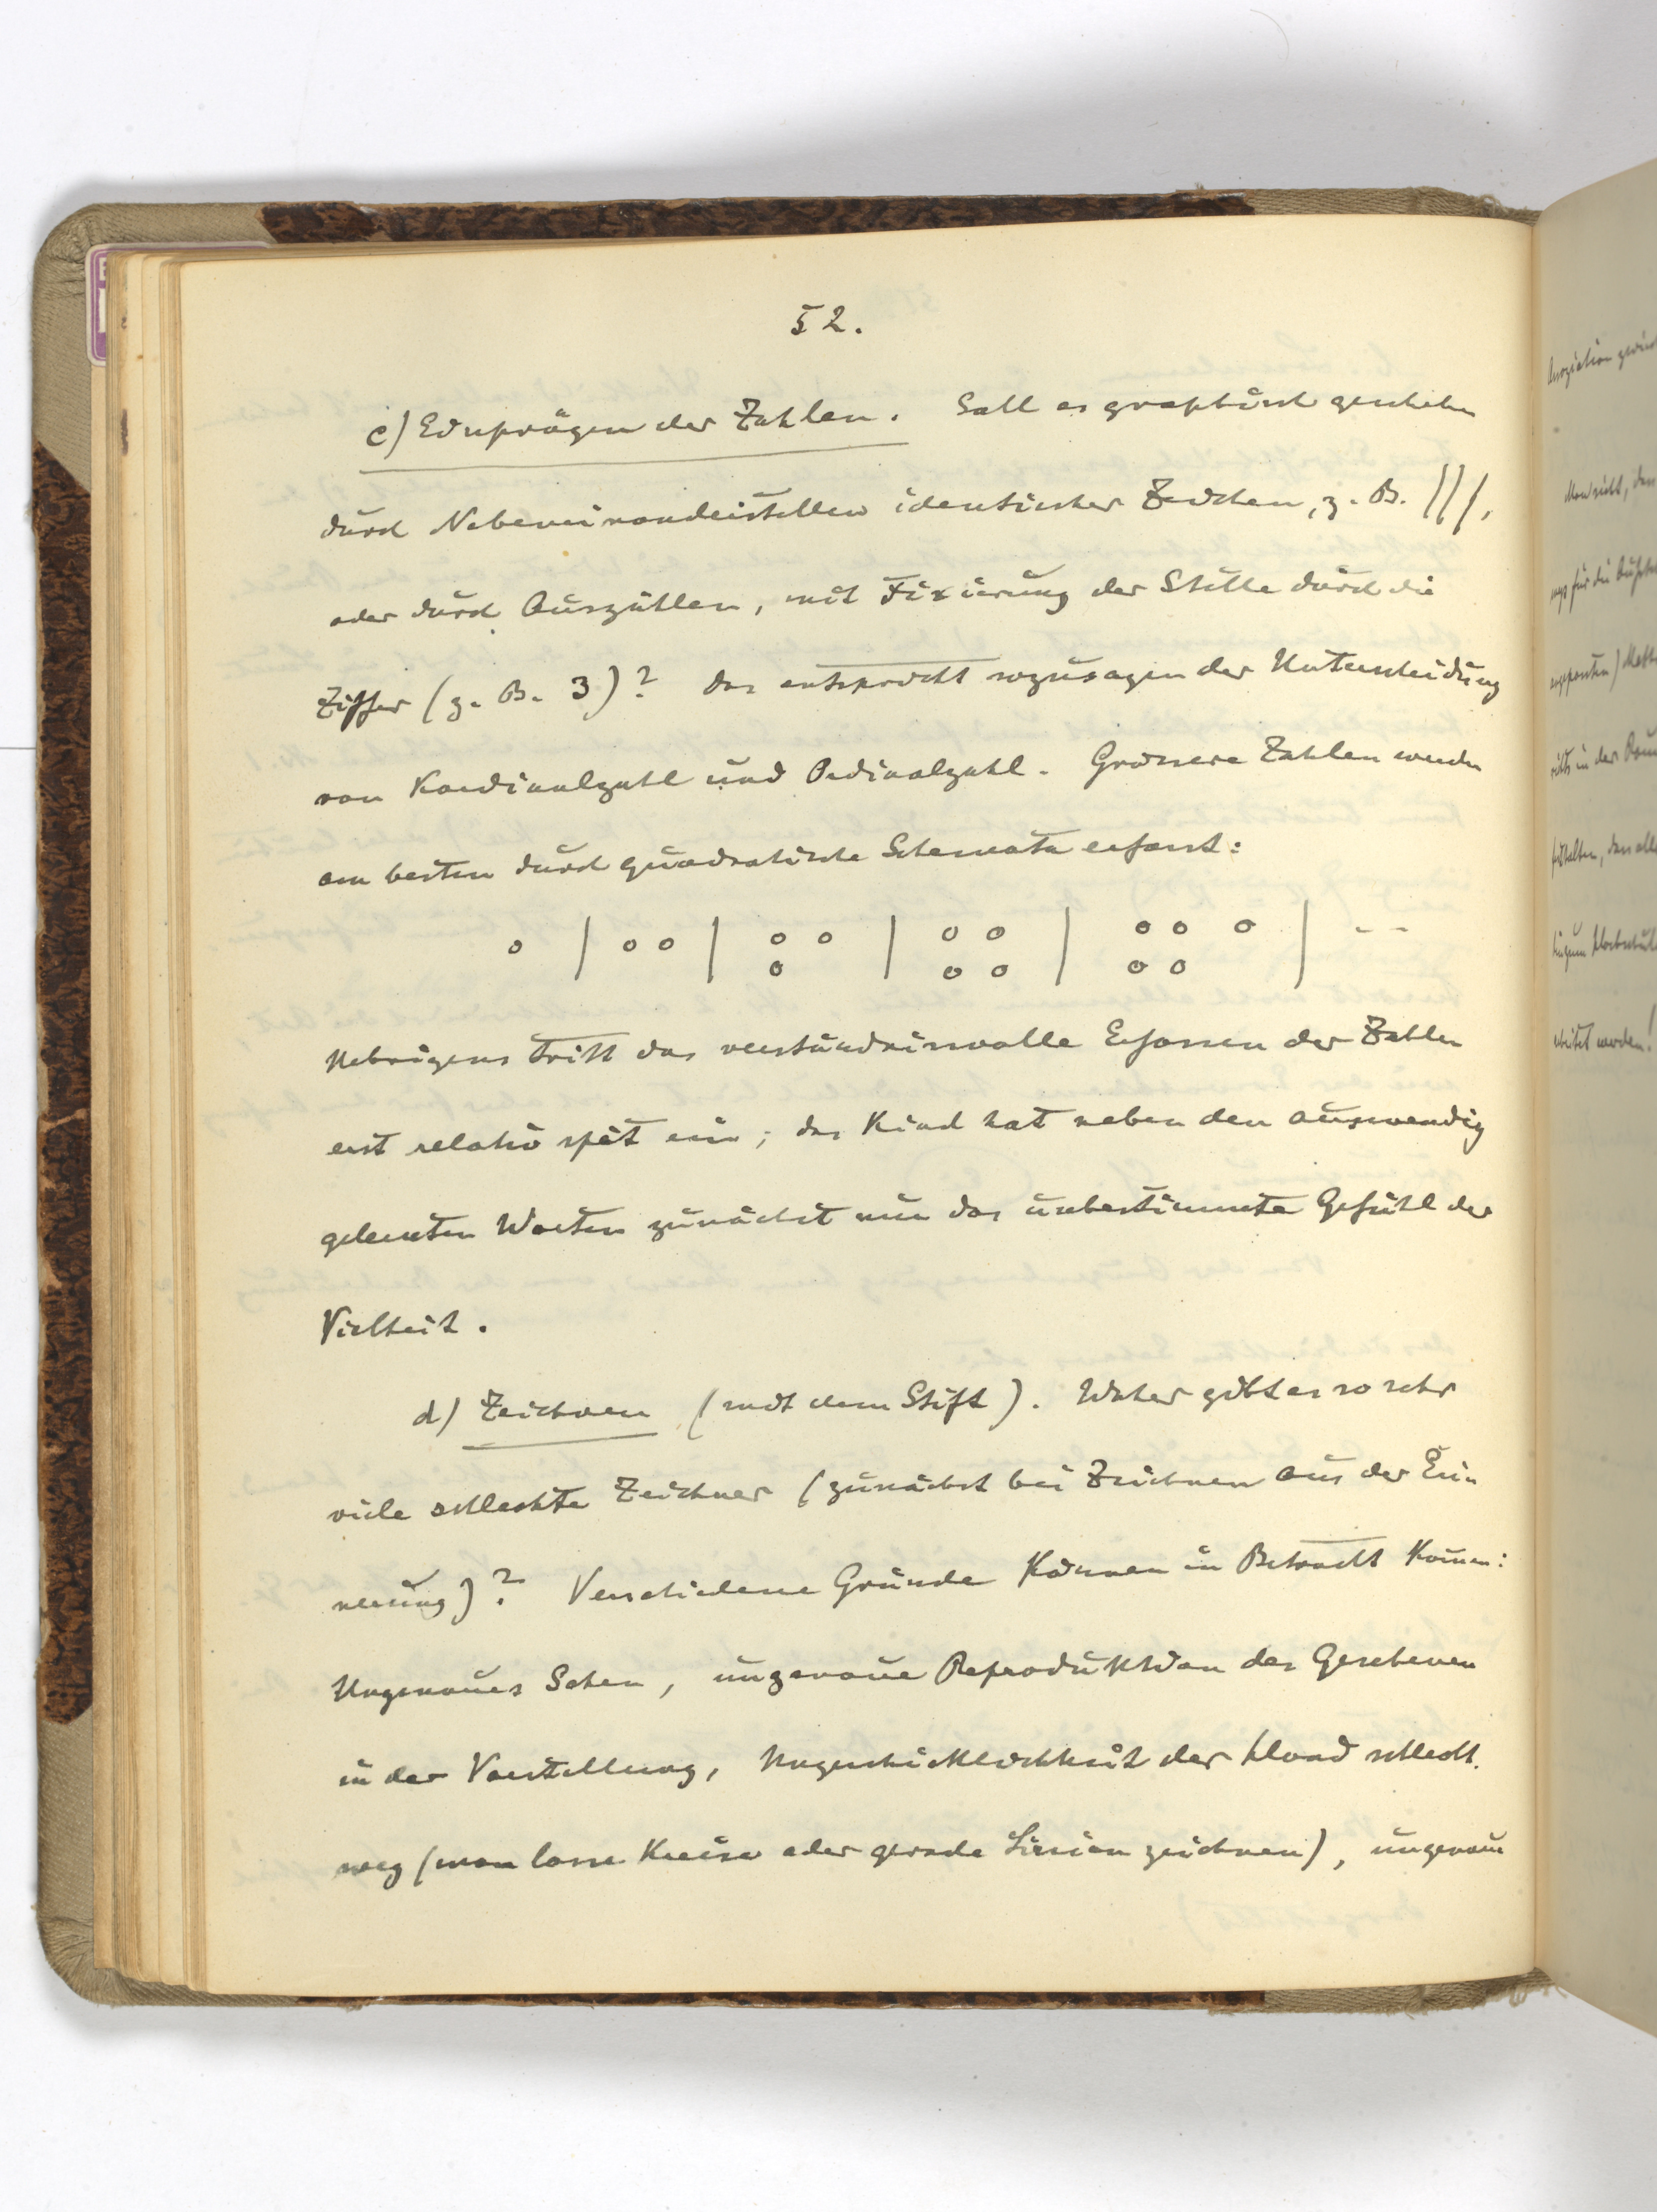 52.
c) Einprägen der Zahlen. Soll es graphisch geschehen
durch Nebeneinanderstellen identischer Zeichen, z. B. |||,
oder durch Auszählen, mit Fixierung der Stelle durch die
Ziffer (z. B. 3)? Das entspricht sozusagen der Unterscheidung
von Kardinalzahl und Ordinalzahl. Grössere Zahlen werden
am besten durch quadratische Schemata erfasst:
o | o o | o o | o o | o o o | - -
o o o o o
Uebrigens tritt das verständnisvolle Erfassen der Zahlen
erst relativ spät ein; das Kind hat neben den auswendig
gelernten Worten zunächst nur das unbestimmte Gefühl der
Vielheit.
d) Zeichnen (mit dem Stift). Woher gibt es so sehr
viele schlechte Zeichner (zunächst bei Zeichnen aus der Erin
nerung)? Verschiedene Gründe können in Betracht kommen:
Ungenaues Sehen, ungenaue Reproduktion des Gesehenen
in der Vorstellung, Ungeschicklichkeit der Hand schlecht.
weg (man lasse Kreise oder gerade Linien zeichnen), ungenaue
Man sieht, dass
richts in der
festhalten, dass alle
werden!